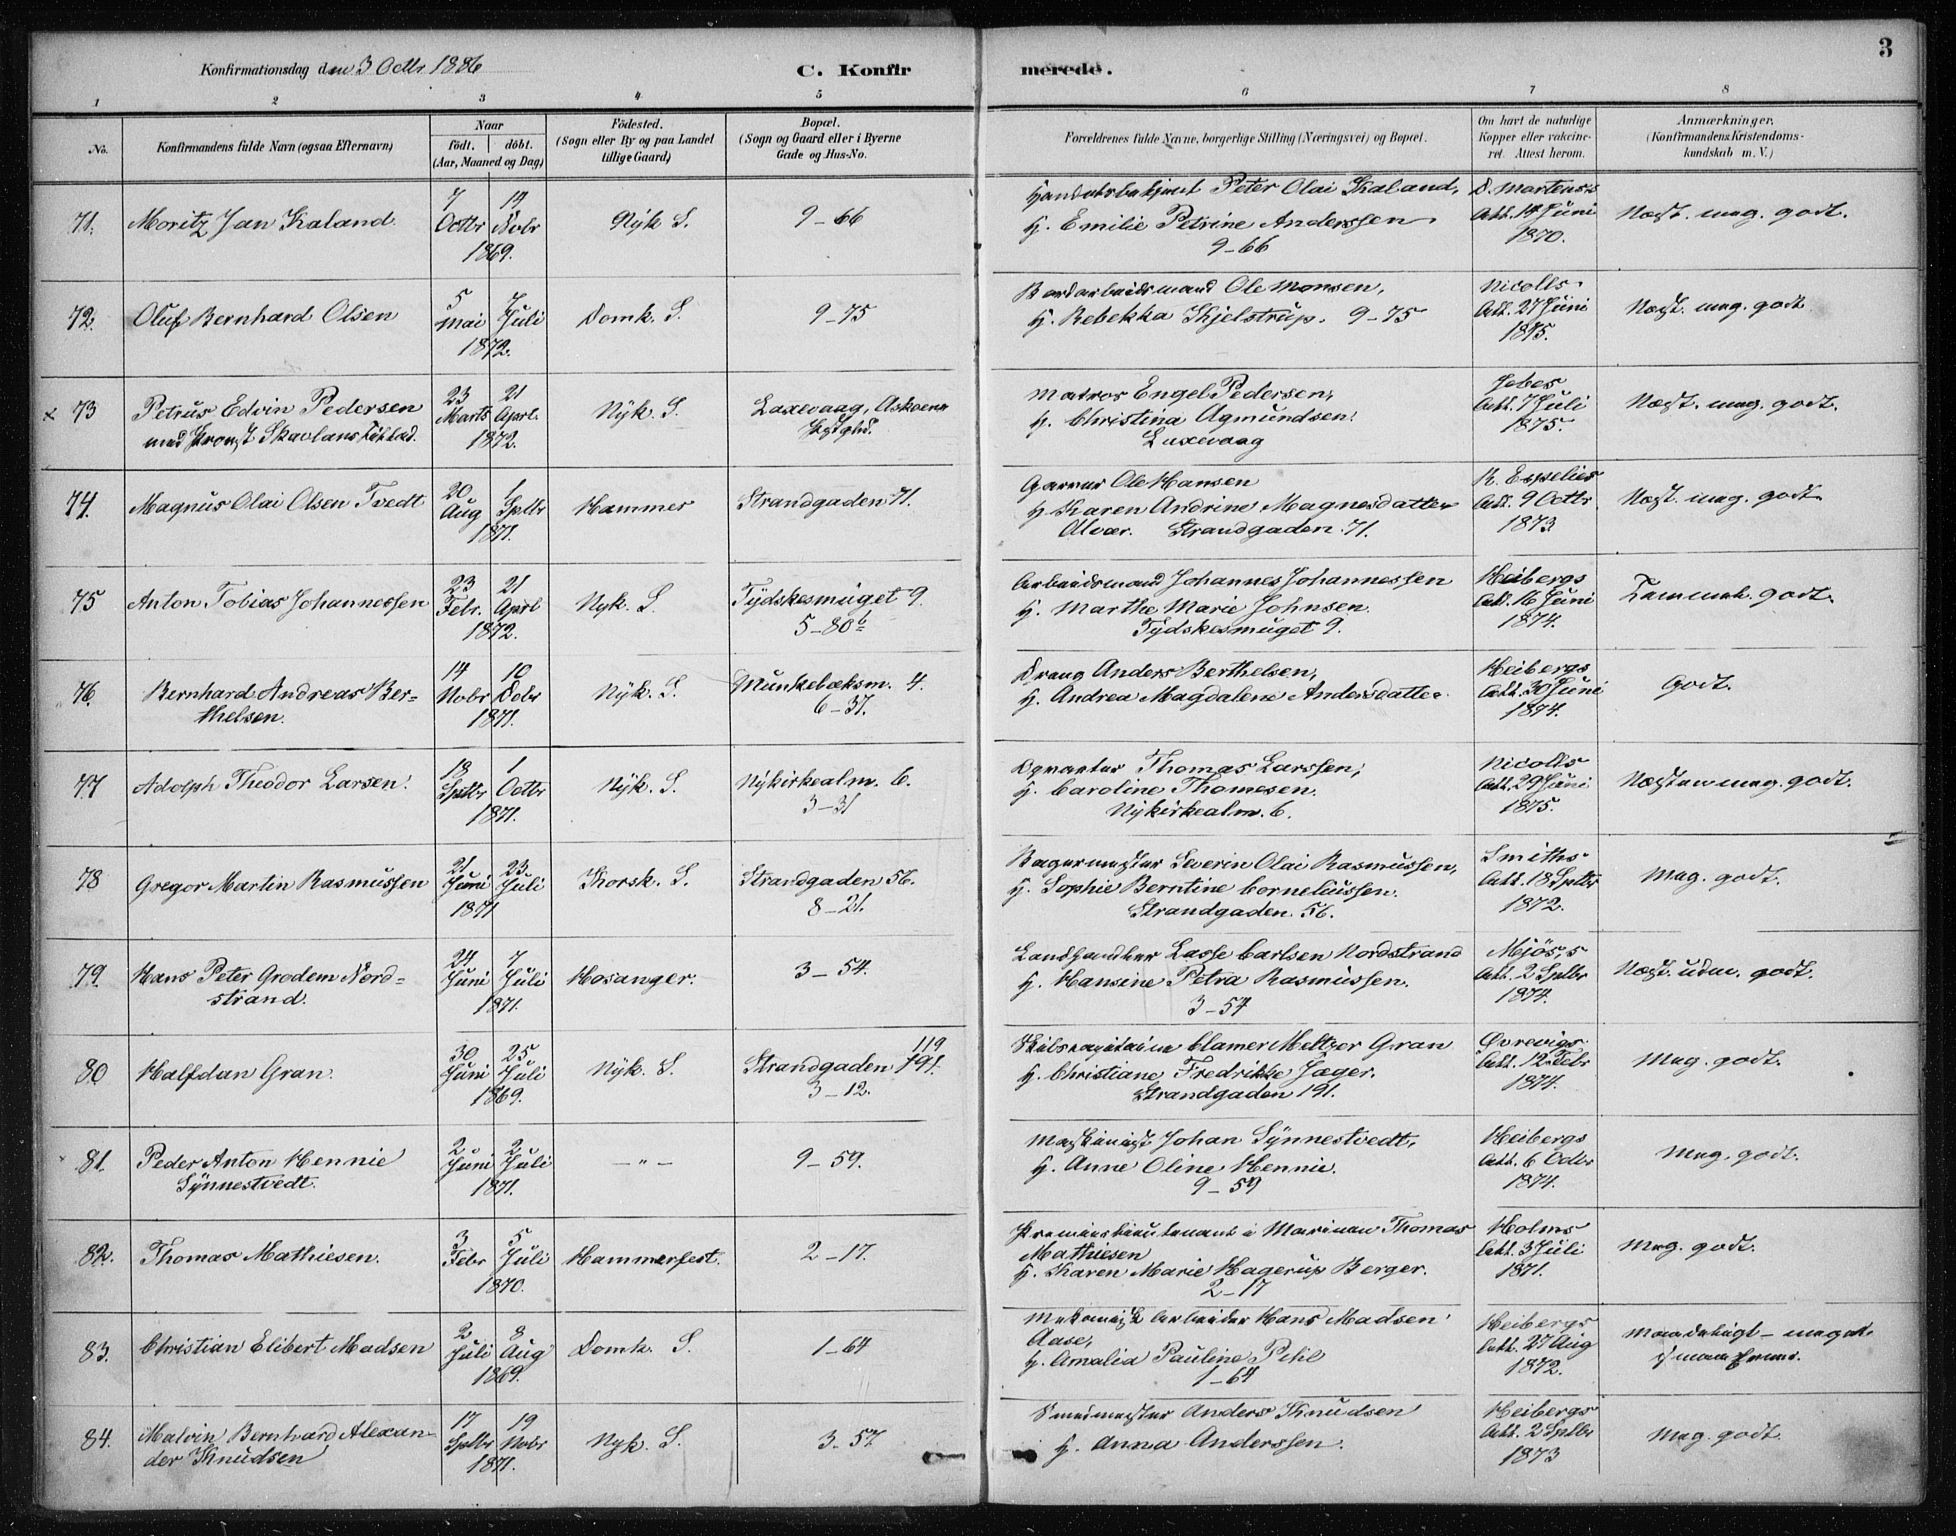 Konfirmationsdag den 3 Octbr 1886
C. Konfirmerede.
3
1 2 3 4 5 6 7 8
No.
Konfirmandens fulde Navn (ogsaa Efternavn)
Naar
födt. döbt.
(Aar, Maaned og Dag)
Födested.
(Sogn eller By og paa Landet
tillige Gaard)
Bopæl.
(Sogn og Gaard eller i Byerne
Gade og Hus-No.
Forældrenes fulde Navne, borgerlige Stilling (Næringsvei) og Bopæl.
Om havt de naturlige
Kopper eller vakcine-
ret. Attest herom.
Anmærkninger.
(Konfirmandens Kristendoms-
kundskab m. V.)
71. Moritz Jan Kaland. 7 Octbr 19 Novbr 1869. Nyk S. 9-66
Handelsbetjent Peter Olai Kaland,
H. Emilie Petrine Anderssen.
9-66
D. Martens's
Att. 14 Juni
1870.
Næst. meg. godt.
72. Oluf Bernhard Olsen 5 Mai 7 Juli 1872. Domk. S. 9-75
Bordarbeidsmand Ole Monsen,
H. Rebekka Kjelstrup. 9-75
Nicolls.
Att. 27 Juni
1875.
Næst. meg. godt
x 73 Petrus Edvin Pedersen
med Provst Skavlans Tillad. 23 Marts 21 April 1872. Nyk. S. Laxevaag, Askoens
Prstgld.
Matros Engel Pedersen,
H. Christina Agmundsen.
Laxevaag
Jebes
Att. 7 Juli
1875.
Næst. meg. godt.
74. Magnus Olai Olsen Tvedt 20 Aug 1 Sptbr 1871. Hammer Strandgaden 71.
Garver Ole Hansen
H. Karen Andrine Magnesdatter
Alvær. Strandgaden 71.
K. Espelies
Att. 9 Octbr
1873
Næst. meg. godt
75 Anton Tobias Johannessen 23 Febr. 21 April 1872. Nyk. S. Tydskesmuget 9.
5-80b
Arbeidsmand Johannes Johannessen
H. Marthe Marie Johnsen.
Tydskesmuget 9.
Heibergs
Att. 16 Juni
1874.
Temmel. godt.
76. Bernhard Andreas Ber-
thelsen. 14 Novbr 10 Dcbr 1871. Nyk. S. Munkebæksm. 4.
6-37.
Dreng Anders Berthelsen,
H. Andrea Magdalene Andersdatter
Heibergs
Att. 30 Juni
1874.
Godt.
77 Adolph Theodor Larsen. 18 Sptbr 1 Octbr 1871. Nyk. S. Nykirkealm. 6.
3-31
Thomas Larssen,
H. Caroline Thomesen.
Nykirkealm. 6.
Nicolls
Att. 29 Juni
1875.
Næsten meg. godt.
78 Gregor Martin Rasmussen 21 Juni 23 Juli 1871 Korsk. S. Strandgaden 56.
8-21.
Bagermester Severin Olai Rasmussen,
H. Sophie Berntine Corneliussen.
Strandgaden 56.
Smiths
Att. 18 Sptbr
1872.
Meg. godt.
79. Hans Peter Grodem Nord-
strand. 24 Juni 7 Juli 1871. Hosanger. 3-54.
Landhandler Lasse Carlsen Nordstrand
H. Hansine Petra Rasmussen.
3-54
Mjös's
Att. 2 Sptbr
1874.
Næst. udm. godt.
80 Halfdan Gran. 30 Juni 25 Juli 1869. Nyk. S. 119
Strandgaden 191.
3-12.
Skibscapitaine Clamer Meltzer Gran
H. Christiane Fredrikke Jæger.
Strandgaden 191.
Qvrevigs
Att. 12 Febr
1874.
Meg. godt.
81. Peder Anton Hennie
Synnestvedt. 2 Juni 2 Juli 1871. — " — 9-59.
Maskinist Johan Synnestvedt,
H. Anne Oline Hennie.
9-59
Heibergs
Att. 6 Octbr
1874.
Meg. godt.
82. Thomas Mathiesen. 3 Febr 5 Juli 1870. Hammerfest. 2-17.
Premierlieutenant i Marinen Thomas
Mathiesen
H. Karen Marie Hagerup Berger.
2-17
Holms
Att. 3 Juli
1871.
Meg. godt.
83. Christian Elibert Madsen 2 Juli 8 Aug 1869. Domk. S. 1-64
Mekanisk Arbeider Hans Madsen
Aase,
H. Amalia Pauline Pihl
1-64
Heibergs
Att. 27 Aug
1872.
Maadeligt - meget
84. Malvin Bernhard Alexan-
der Knudsen 17 Sptbr 19 Novbr 1871. Nyk. S. 3-57
Smedmester Anders Knudsen
H. Anna Anderssen.
Heibergs
Att. 2 Sptbr
1873
Meg. godt.